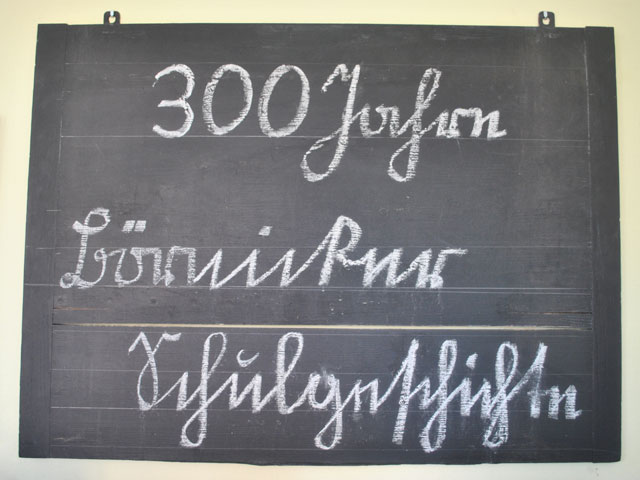 300 Jahre
Börnicker
Schulgeschichte